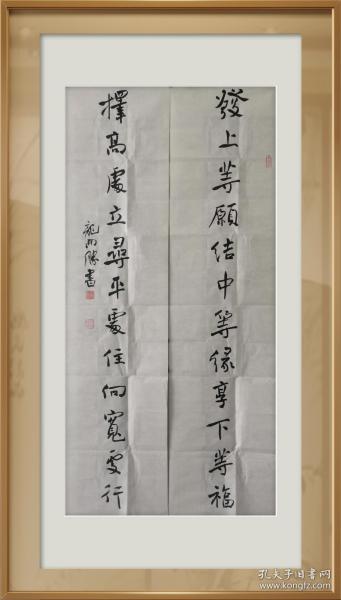 發上等願結中等緣享下等福
擇高處立尋平處住向寬處行
孔夫子旧书网
www.kongfz.com